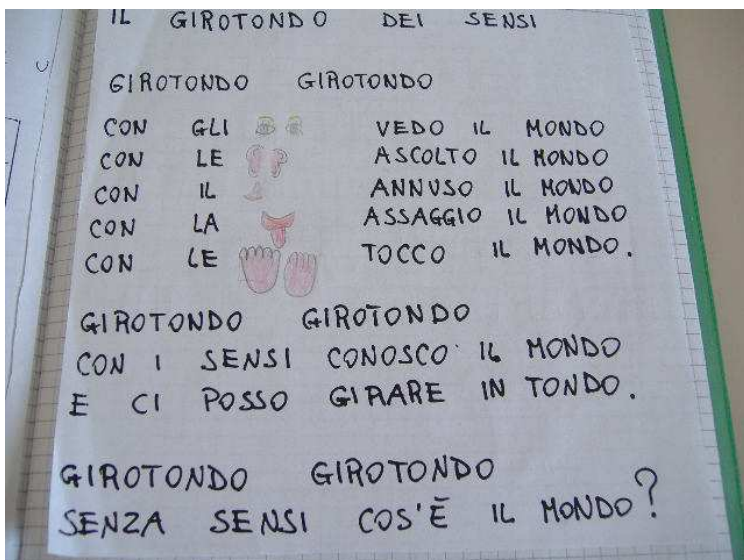 IL GIROTONDO DEI SENSI
GIROTONDO GIROTONDO
CON GLI VEDO IL MONDO
CON LE ASCOLTO IL MONDO
CON IL ANNUSO IL MONDO
CON LA ASSAGGIO IL MONDO
CON LE TOCCO IL MONDO.
GIROTONDO GIROTONDO
CON I SENSI CONOSCO IL MONDO
E CI POSSO GIRARE IN TONDO.
GIROTONDO GIROTONDO
SENZA SENSI COS'È IL MONDO?